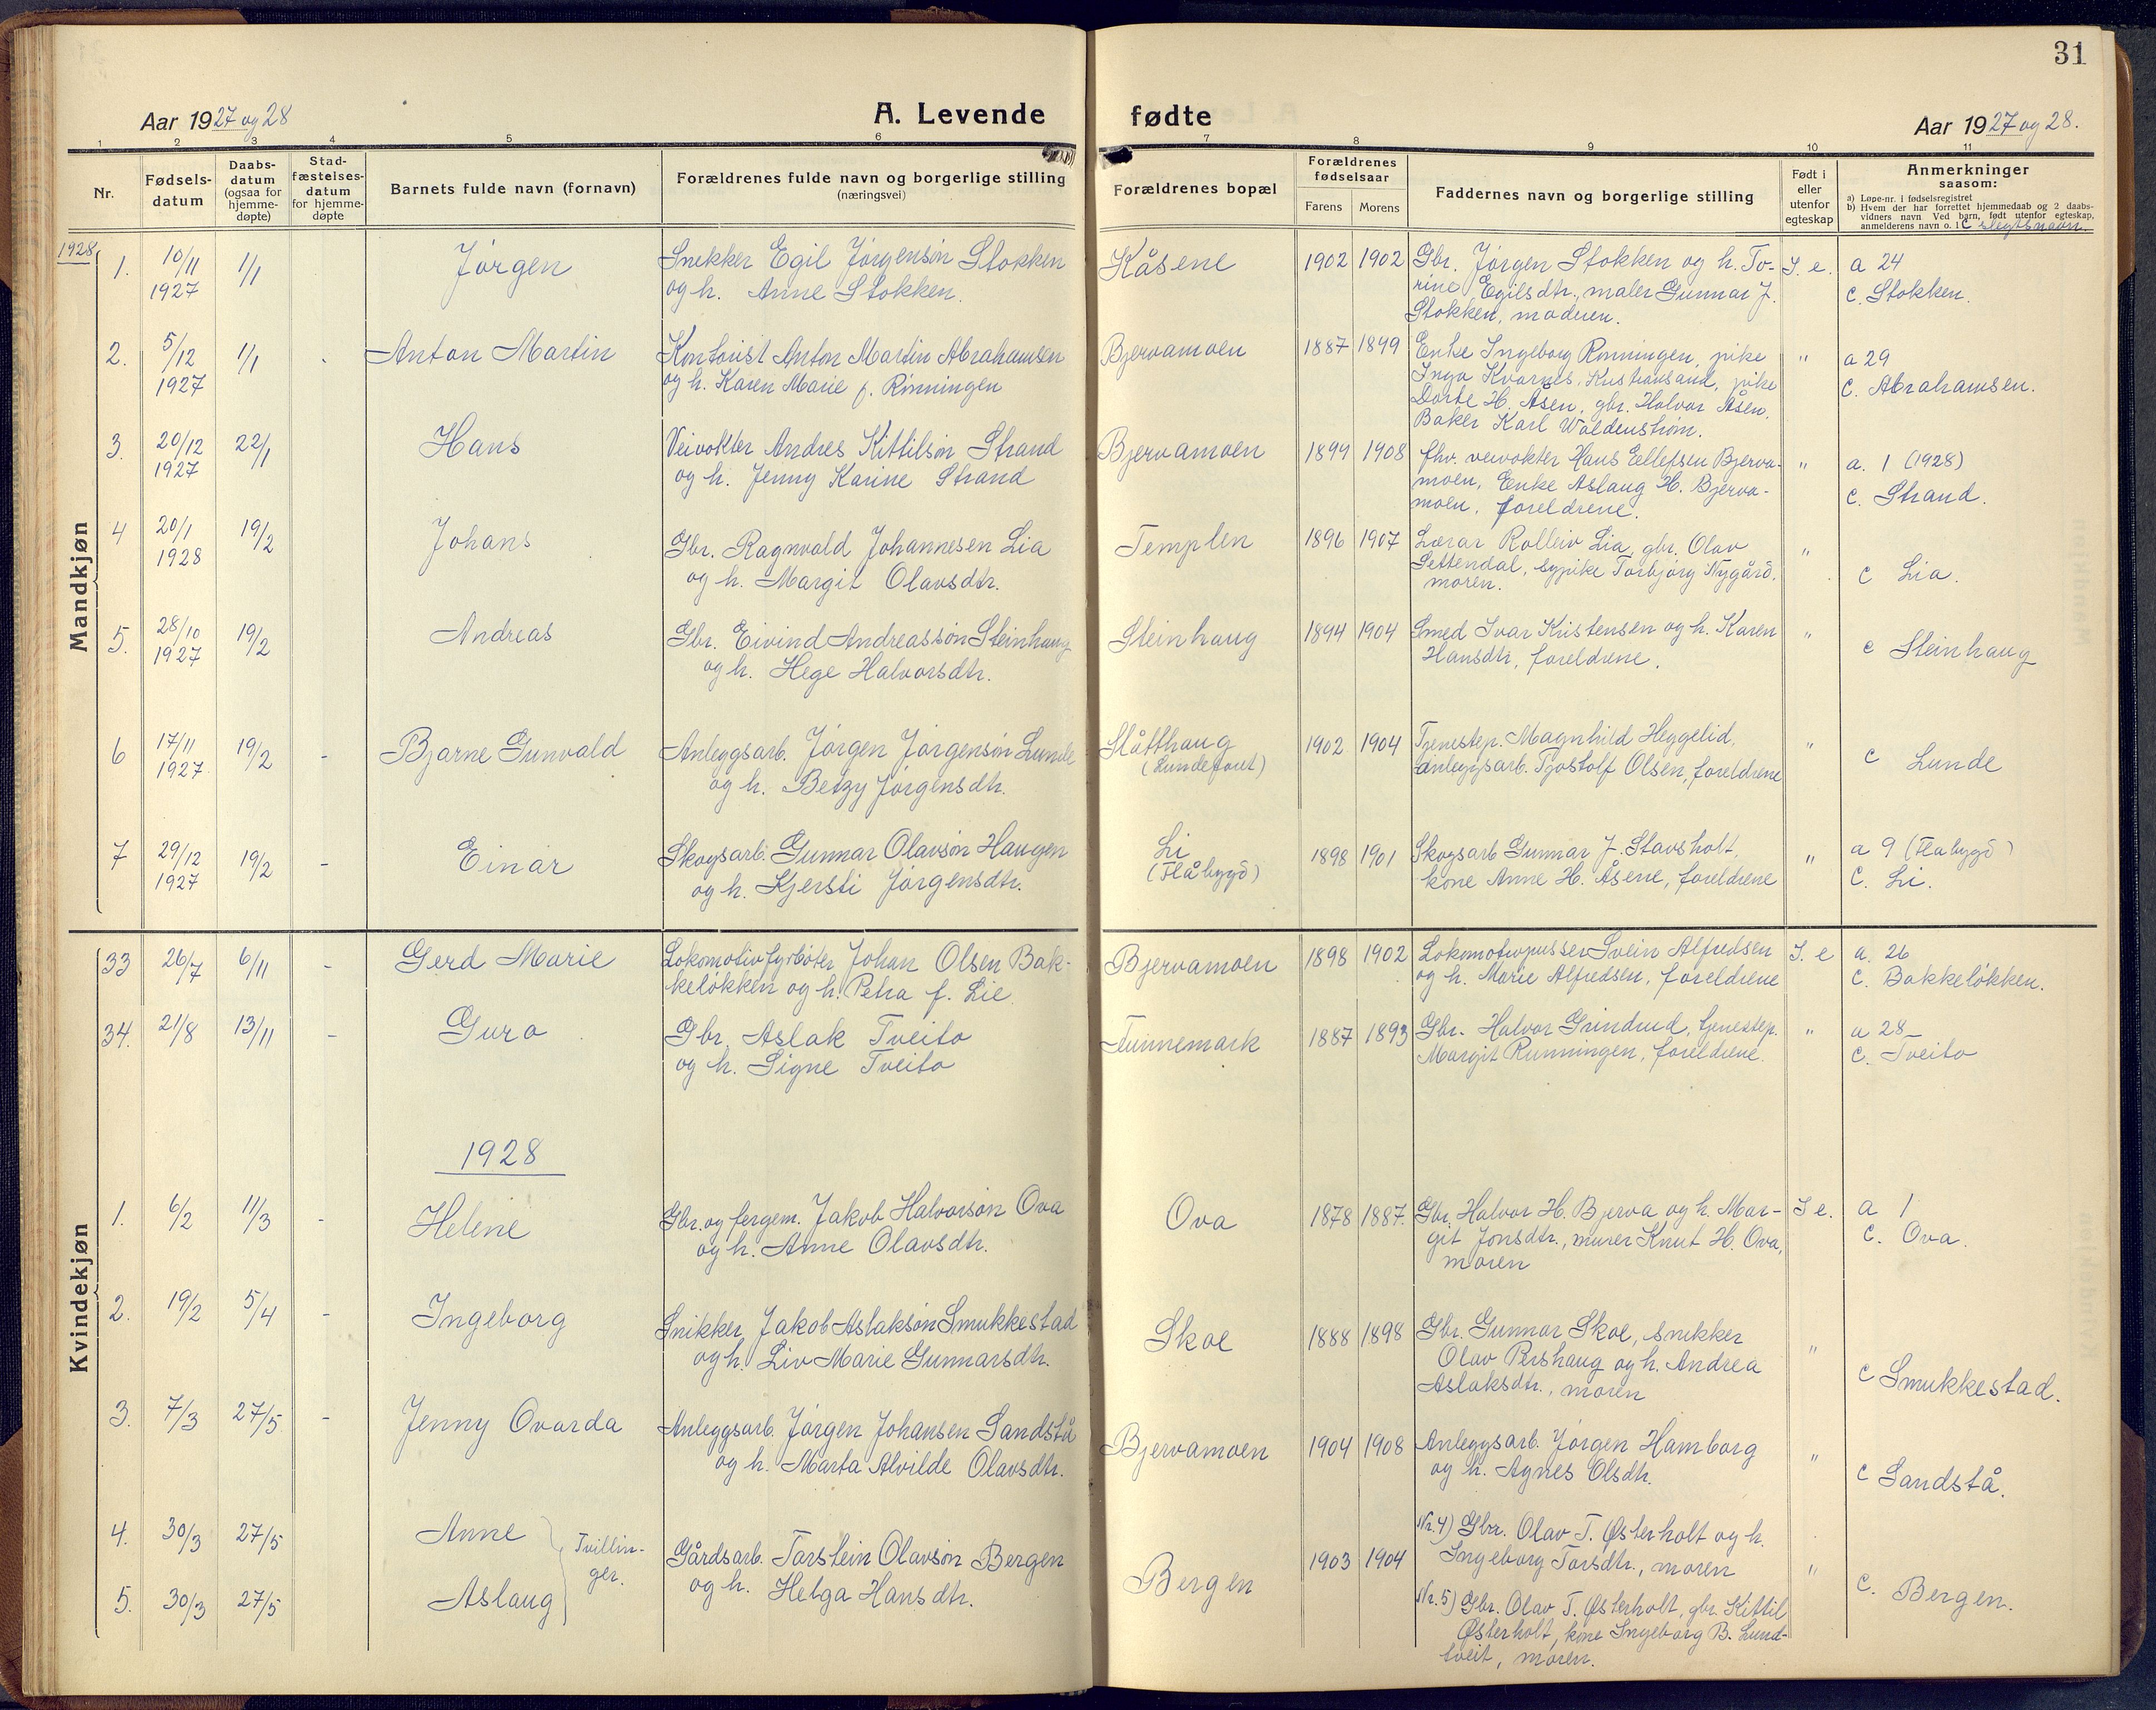 31
Aar 1927 og 28
A. Levende fødte
Aar 1927 og 28.
1 2 3 4 5 6 7 8 9 10 11
Nr.
Fødsels-
datum
Daabs-
datum
(ogsaa for
hjemme-
døpte)
Stad-
fæstelses-
datum
for hjemme-
døpte
Barnets fulde navn (fornavn)
Forældrenes fulde navn og borgerlige stilling
(næringsvei)
Forældrenes bopæl
Forældrenes
fødselsaar
Farens
Morens
Faddernes navn og borgerlige stilling
Født i
eller
utenfor
egteskap
Anmerkninger
saasom:
a) Løpe-nr. i fødselsregistret
b) Hvem der har forrettet hjemmedaab og 2 daabs-
vidners navn Ved barn, født utenfor egteskap,
anmelderens navn o. l. C slegtsnavn.
Mandkjøn
1928
1. 10/11 1927 1/1 Jørgen
Snekker Egil Jørgensøn Stokken
og h. Anne Stokken.
Kåsene 1902 1902
Gbr. Jørgen Stokken og h. To-
rine Egilsdtr., maler Gunnar J.
Stokken, moderen.
I. e.
a 24
C. Stokken.
2. 5/12 1927 1/1 Anton Martin
Kontorist Anton Martin Abrahamsen
og h. Karen Marie f. Rønningen
Bjervamoen 1887 1899
Enke Ingeborg Rønningen, pike
Inga Kvarnes, Kristiansand, pike
Dorte H. Åsen, gbr. Halvor Åsen,
Baker Karl Waldenstrøm.
"
a 29
C. Abrahamsen.
3. 20/12 1927 22/1 Hans
Veivokter Andres Kittilsøn Strand
og h. Jenny Karine Strand
Bjervamoen 1899 1908
fhv. veivokter Hans Ellefsen Bjerva-
moen, Enke Aslaug H. Bjerva-
moen, foreldrene.
"
a. 1 (1928)
c. Strand.
4 20/1 1928 19/2 Johans
Gbr. Ragnvald Johannesen Lia
og h. Margit Olavsdtr.
Templen 1896 1907
Lærar Rolleiv Lia, gbr. Olav
Settendal, sypike Torbjørg Nygård,
moren.
"
c Lia.
5. 28/10 1927 19/2 Andreas
Gbr. Eivind Andreassøn Steinhaug
og h. Hege Halvorsdtr.
Steinhaug 1894 1904
Smed Ivar Kristensen og h. Karen
Hansdtr, foreldrene.
"
c Steinhaug
6 17/11 1927 19/2 - Bjarne Gunvald
Anleggsarb. Jørgen Jørgensøn Lunde
og h. Betzy Jørgensdtr.
Slåtthaug
(Lundefaret)
1902 1904
Tjenestep. Magnhild Heggelid,
anleggsarb. Tjostolf Olsen, foreldrene
"
c Lunde
7 29/12 1927 19/2 - Einar
Skogsarb. Gunnar Olavsøn Haugen
og h. Kjersti Jørgensdtr.
Li
(Flåbygd)
1898 1901
Skogsarb Gunnar J. Stavsholt,
kone Anne H. Åsene, foreldrene
"
a 9 (Flabygd)
C. Li.
Kvindekjøn
33 26/7 6/11 - Gerd Marie
Lokomotivfyrbøter Johan Olsen Bak-
keløkken og h. Petra f. Lie.
Bjervamoen 1898 1902
Lokomotivpusser Svein Alfredsen
og h. Marie Alfredsen, foreldrene
I. e
a. 26
C. Bakkeløkken.
34. 21/8 13/11 - Guro
Gbr. Aslak Tveito
og h. Signe Tveito
Finnemark 1887 1893
Gbr. Halvor Grindrud, tjenestep.
Margit Rønningen, foreldrene.
"
a 28
C. Tveito
1928
1. 6/2 11/3 - Helene
Gbr. og fergem. Jakob Halvorsøn Ova
og h. Anne Olavsdtr.
Ova 1878 1887.
Gbr. Halvor H. Bjerva og h. Mar-
git Jonsdtr., murer Knut H. Ova,
moren
I e.
a 1
C. Ova.
2. 19/2 5/4 - Ingeborg
Snikker Jakob Aslaksøn Smukkestad
og h. Liv Marie Gunnarsdtr.
Skoe 1888 1898
Gbr. Gunnar Skoe, snikker
Olav Pershaug og h. Andrea
Aslaksdtr., moren
"
c Smukkestad.
3. 7/3 27/5 - Jenny Ovarda
Anleggsarb. Jørgen Johansen Sandstå
og h. Marta Alvilde Olavsdtr.
Bjervamoen 1904 1908
Anleggsarb. Jørgen Hamborg
og h. Agnes Olsdtr.
"
c Sandstå.
4. 30/3 27/5 Anne
5. 30/3 27/5 Aslaug
Tvillin-
ger.
Gårdsarb. Torstein Olavsøn Bergen
og h. Helga Hansdtr.
Bergen 1903 1904
Nr. 4) Gbr. Olav T. Østerholt og h.
Ingeborg Torsdtr., moren
Nr. 5) Gbr. Olav T. Østerholt, gbr. Kittil
Østerholt, kone Ingeborg B. Lund-
tveit, moren.
"
C. Bergen.